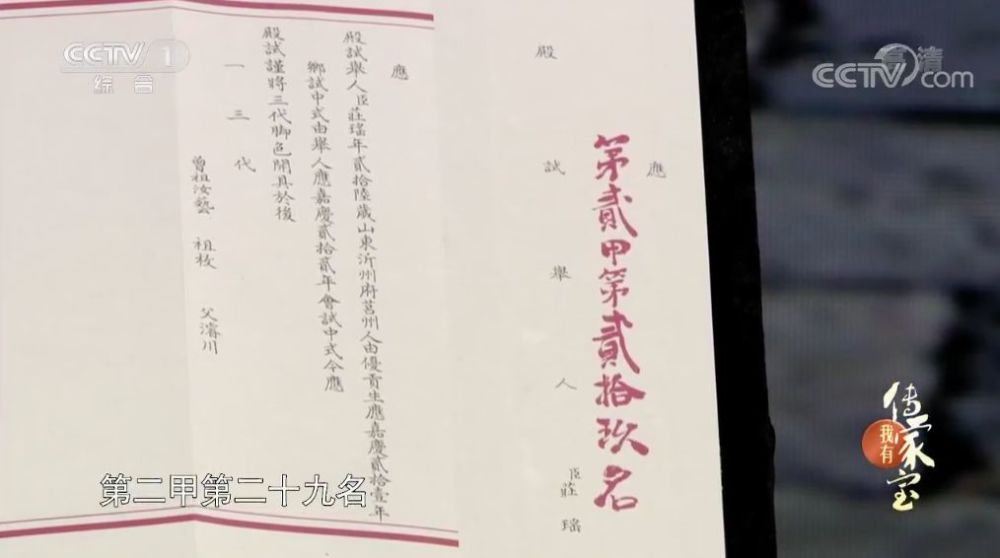 CCTV 1
综合
高清
CCTV.com
應
第貳甲第貳拾玖名
殿試舉人臣莊瑤
應
殿試舉人臣莊瑤年貳拾陸歲山東沂州府莒州人由優貢生應嘉慶貳拾壹年
鄉試中式由舉人應嘉慶貳拾貳年會試中式今應
殿試謹將三代脚色開具於後
一三代
曾祖汝藝 祖枚 父濬川
第二甲第二十九名
我有
傳家宝